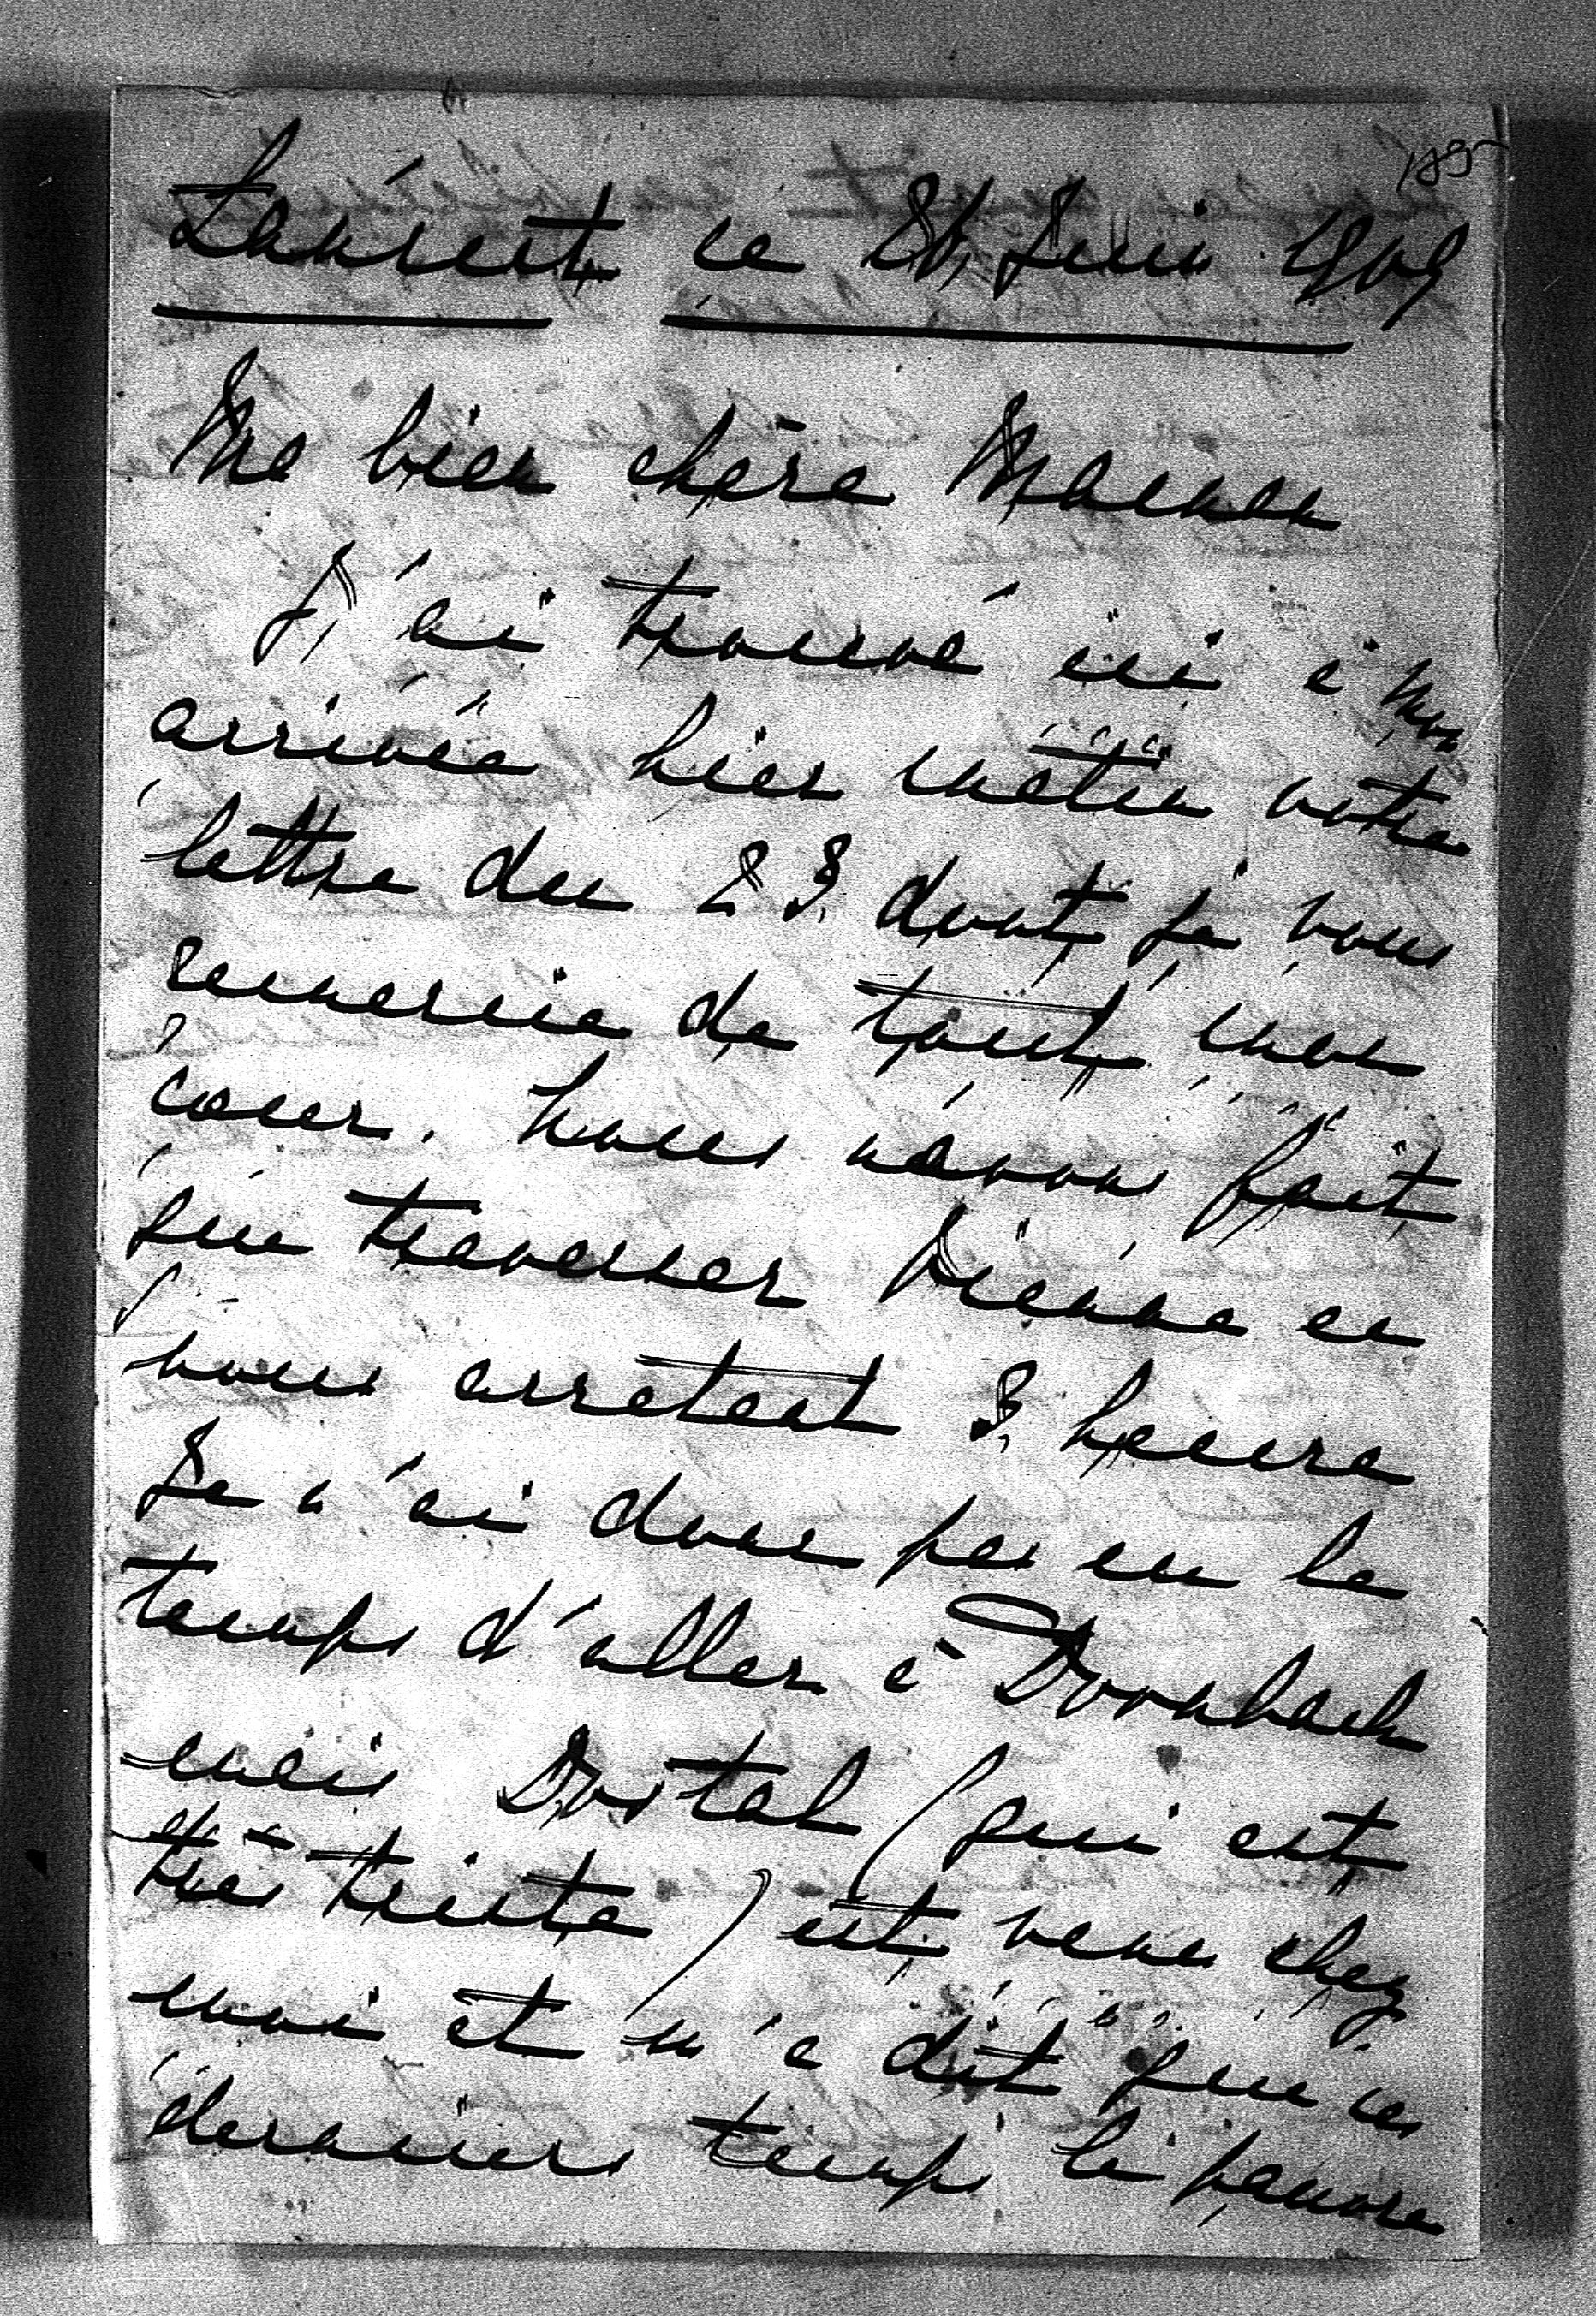 189
Lancut ce 26 Juin 1909
Ma bien chère Maman
J'ai trouvé ici à mon
arrivée hier matin votre
lettre du 23 dont je vous
remercie de tout mon
cœur. Nous n'avons fait
que traverser Vienne en
nous arretant 3 heures
Je n'ai donc pas eu le
temps d'aller à Dornbach
mais Dostal (qui est
très triste) est venu chez
moi et m'a dit que ces
derniers temps le pauvre